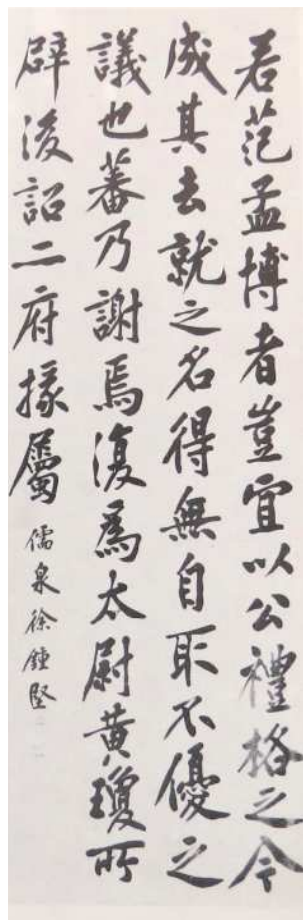 若范孟博者豈宜以公禮格之今
成其去就之名得無自取不優之
議也蕃乃謝焉復為太尉黃瓊所
辟後詔二府掾屬
儒泉徐鍾堅